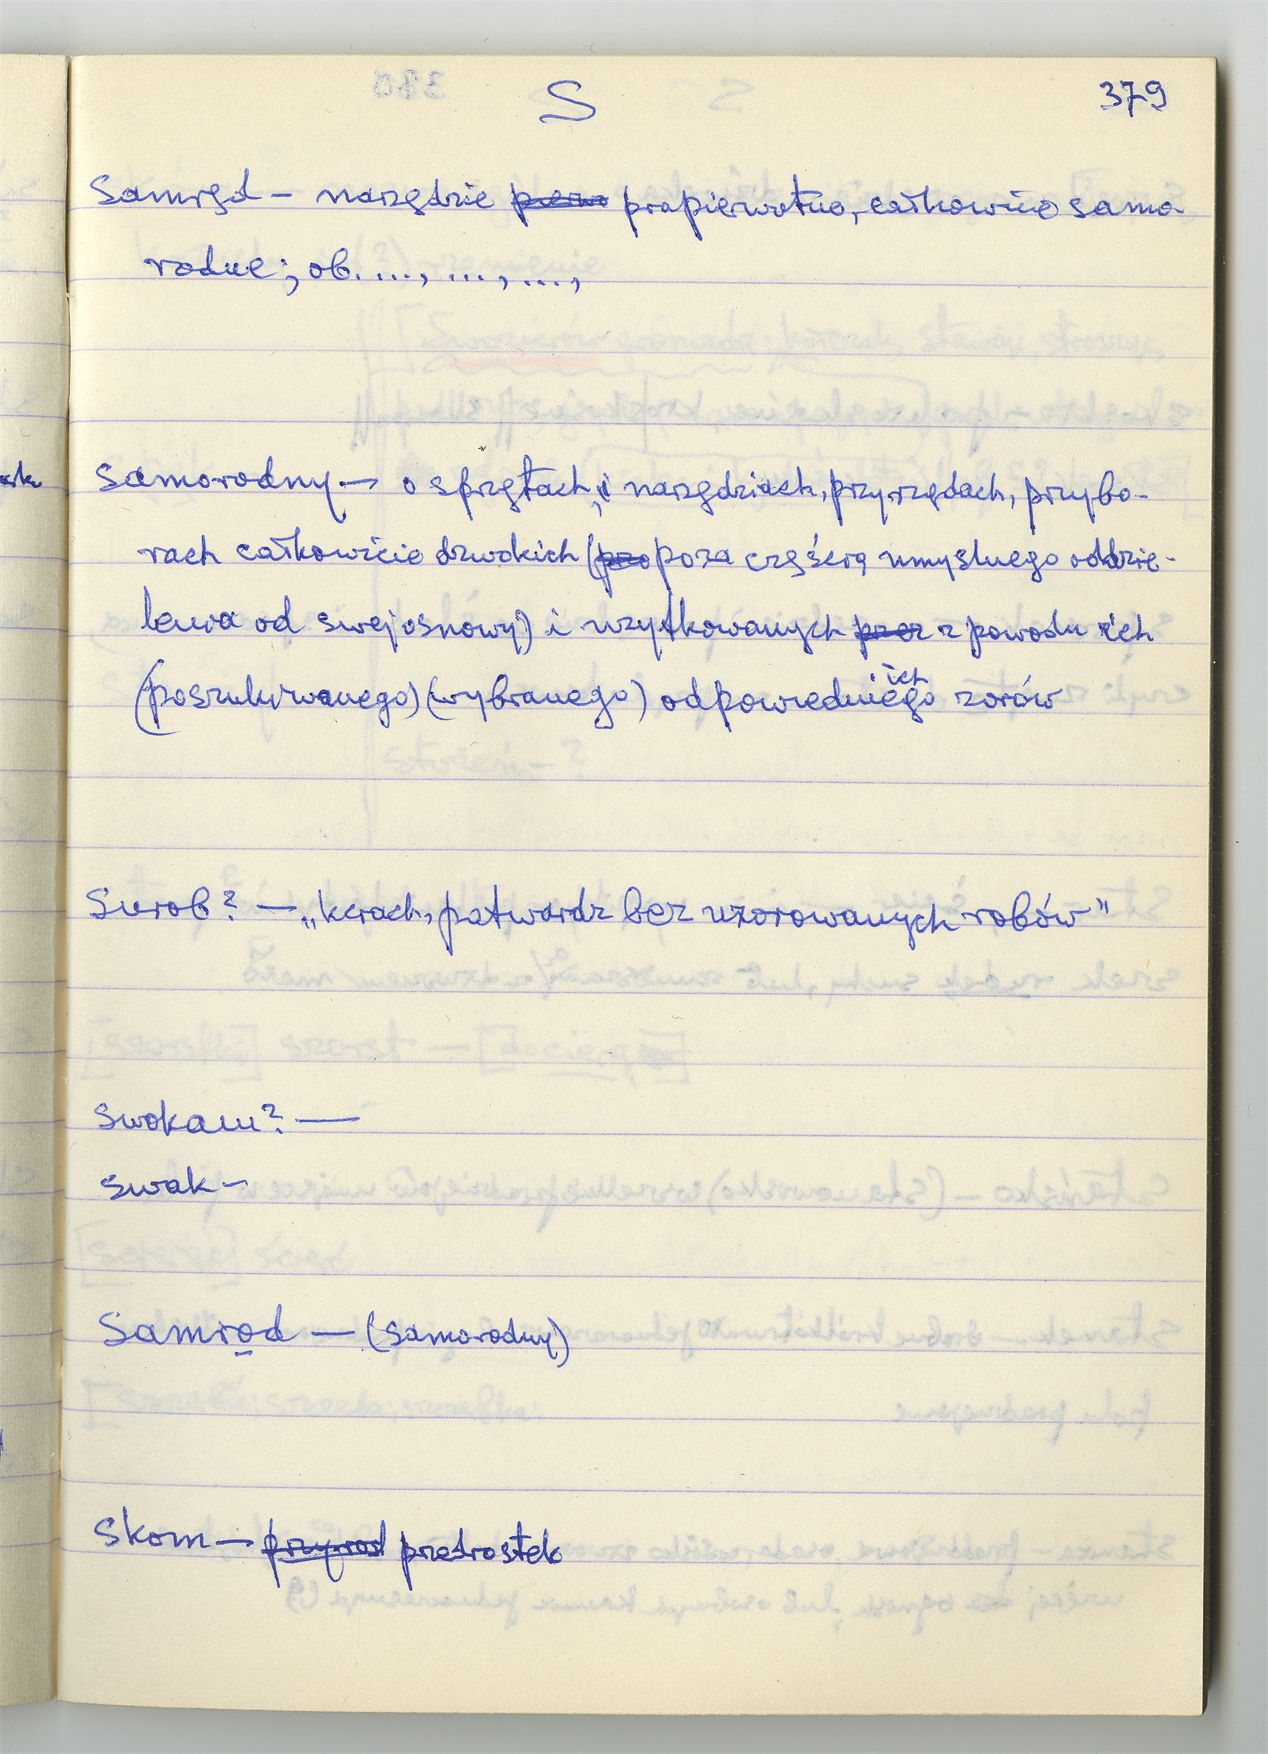 S 379
Samrąd – narzędzie prapierwotne, całkowicie samo
rodne; ob. ..., ..., ...,
Samorodny — o sprzętach, i narzędziach, przyrządach, przybo-
rach całkowicie dzwokich (poza częścią umyslnego oddzie-
lenia od swej osnowy) i użytkowanych z powodu ich
(poszukiwanego) (wybranego) odpowiedniego ich zorów
Surob? — „kerach, patwardz bez uzorowanych robów"
Swokam? —
swak –
Samrod — (samorodny)
Skom — przedrostek